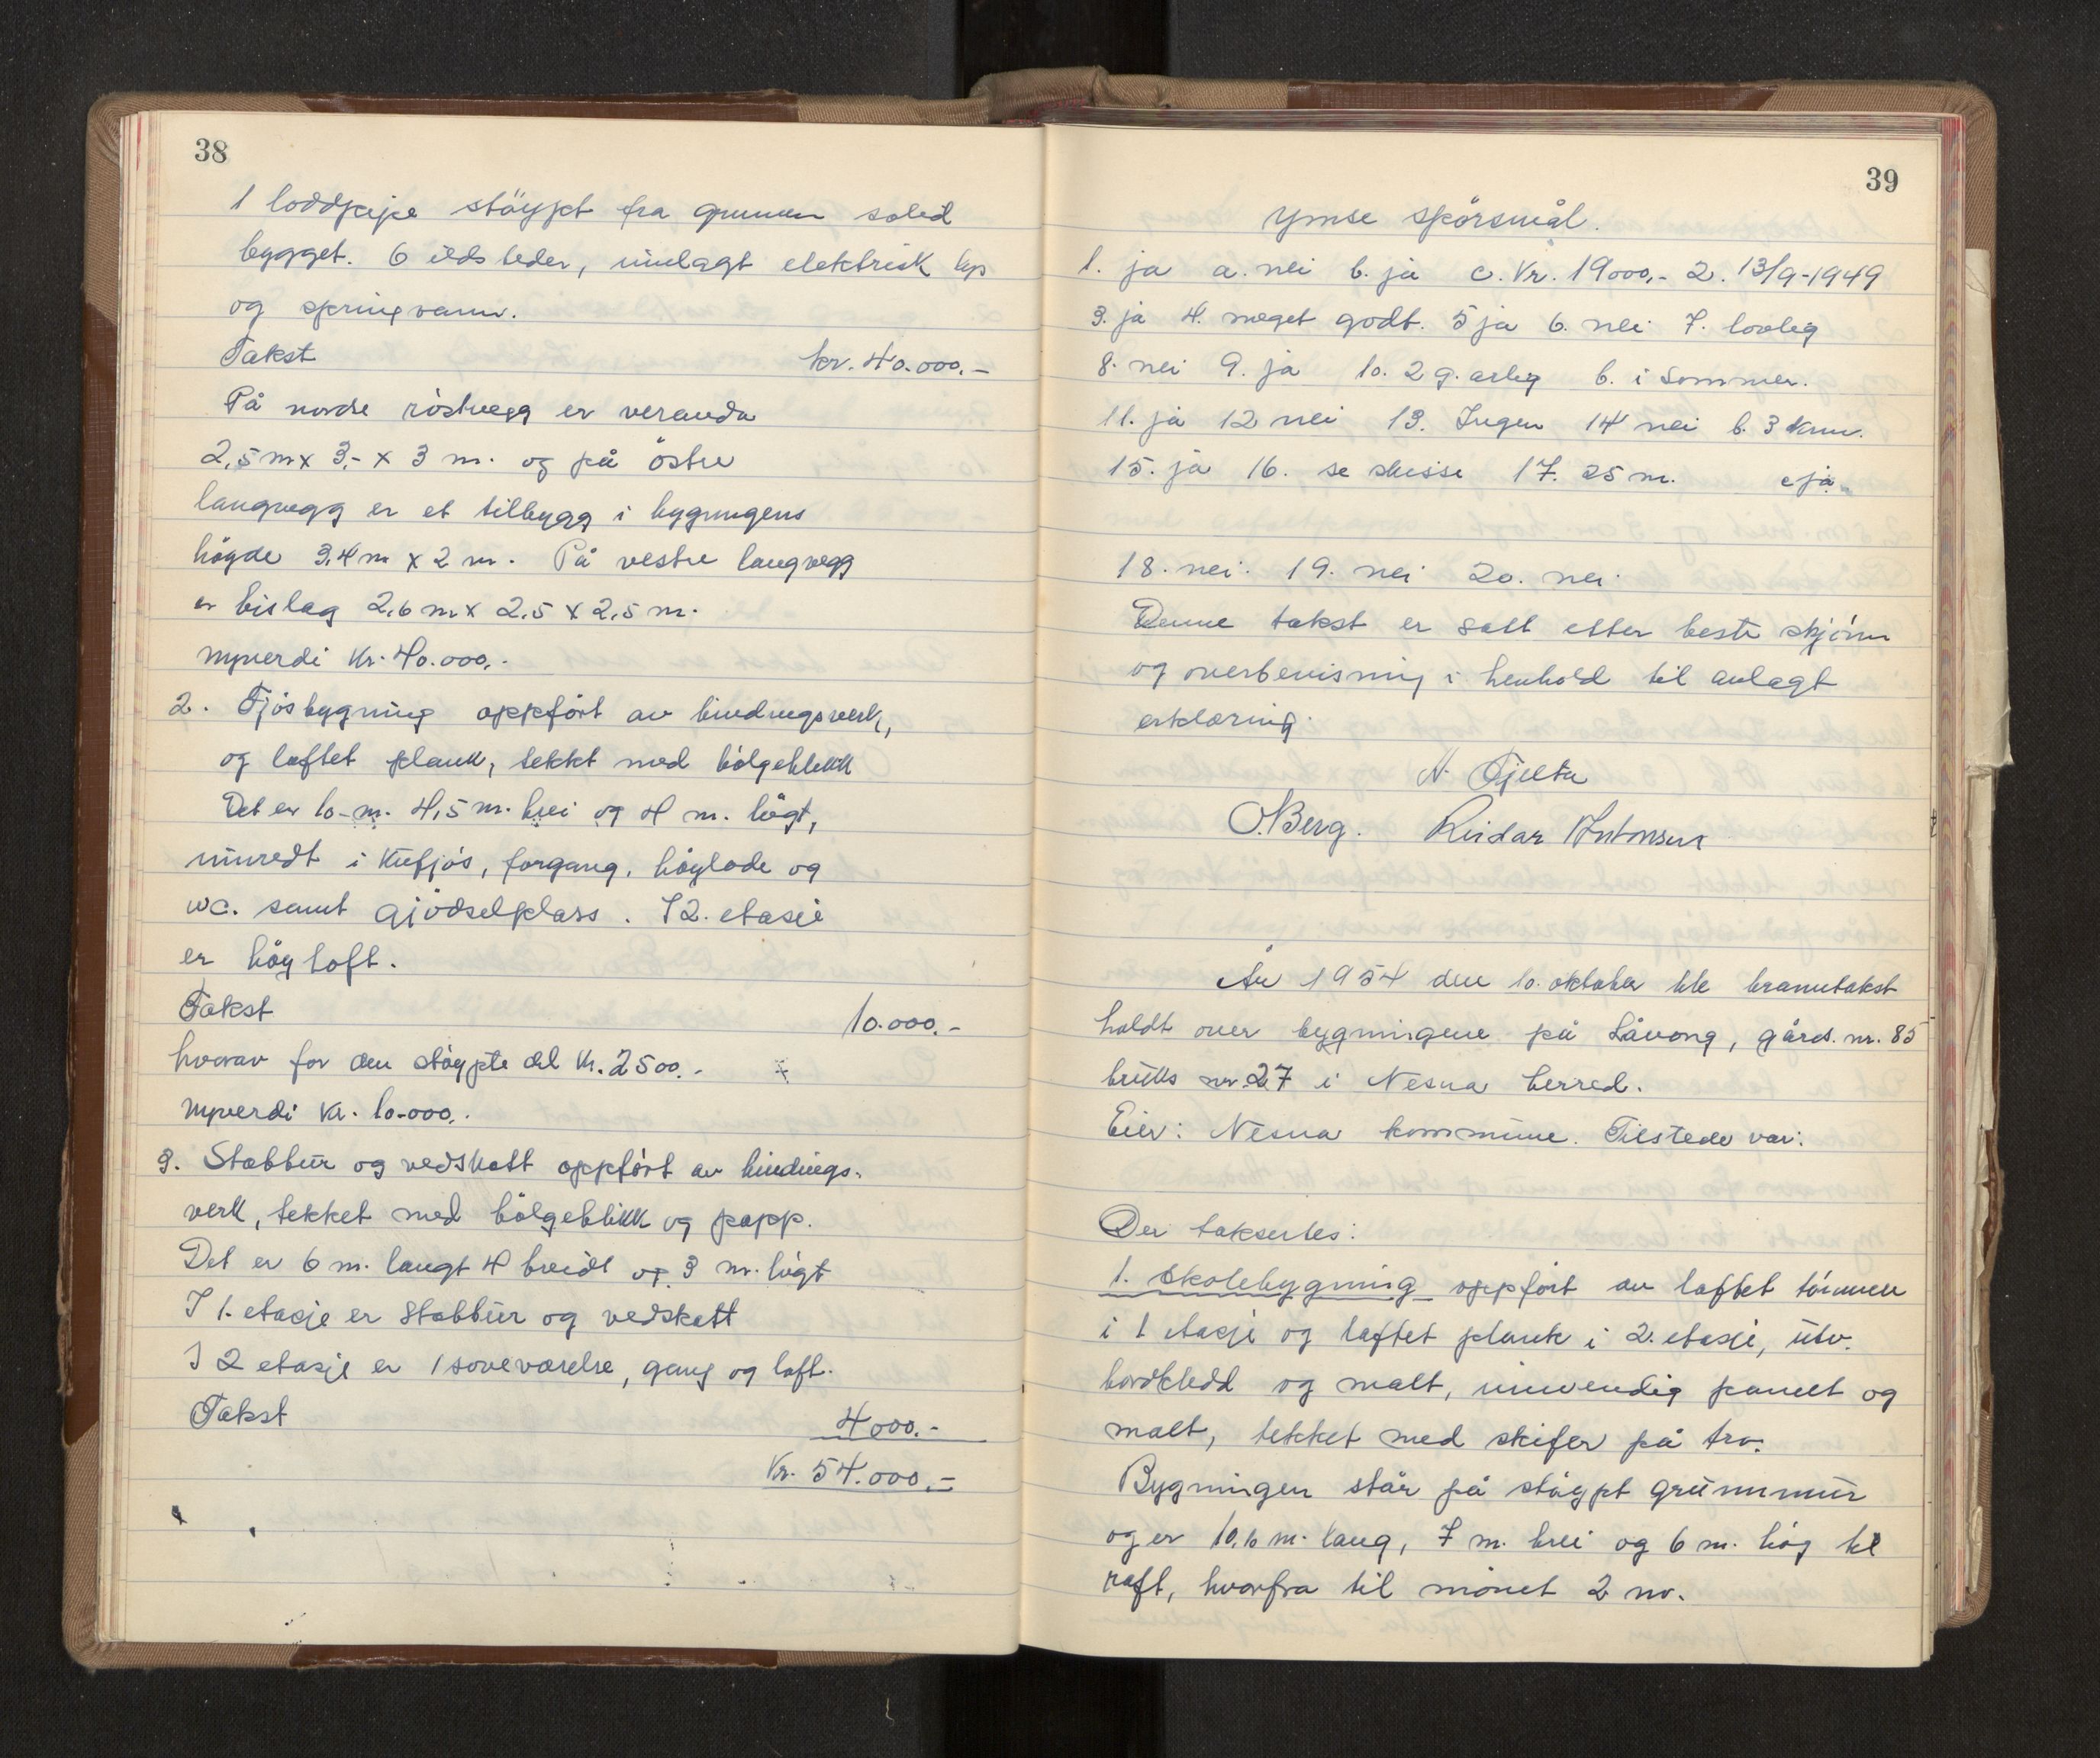 38
1 loddpipe støypt fra grunnen solid
bygget. 6 ildsteder, innlagt elektrisk lys
og springvann.
Takst kr. 40.000.-
På nordre röstvegg er veranda
2,5 m x 3,- x 3 m. og på östre
langvegg er et tilbygg i bygningens
høgde 3,4 m x 2 m. På vestre langvegg
er bislag 2,6 m x 2,5 x 2,5 m.
nyverdi kr. 40.000,-
2. Fjösbygning oppfört av bindingsverk,
og laftet plank, tekket med bölgeblikk
Det er 10 m. 4,5 m. brei og 4 m. högt,
innredt i kufjös, forgang, höylade og
wc. samt gjödselplass. I 2. etasje
er höyloft.
Takst 10.000.-
hvorav for den støypte del kr. 2500.-
nyverdi kr. 10.000,-
3. Stabbur og vedskott oppfört av bindings-
verk, tekket med bölgeblikk og papp.
Det er 6 m. langt 4 breidt og 3 m. högt
I 1. etasje er stabbur og vedskott
I 2 etasje er 1 soveværelse, gang og loft.
Takst 4000.-
Kr. 54.000.-
39
Ymse spörsmål.
1. ja a. nei b. ja c. Kr. 19000,- 2. 13/9-1949
3. ja 4. meget godt. 5 ja 6. nei 7. lovlig
8. nei 9. ja 10. 2 g. årlig b. i sommer.
11. ja 12 nei 13. Ingen 14 nei b. 3 km.
15. ja 16. se skisse 17. 25 m. c ja
18. nei. 19. nei 20. nei.
Denne takst er satt etter beste skjönn
og overbevisning i henhold til avlagt
erklæring.
N. Fjelta
O. Berg. Reidar Antonsen
År 1954 den 10. oktober ble branntakst
holdt over bygningene på Låvong, gårds. nr. 85
bruks nr. 27 i Nesna herred.
Eier: Nesna kommune. Tilstede var:
Der taksertes:
1. Skolebygning oppfört av laftet tömmer
i 1 etasje og laftet plank i 2. etasje, utv.
bordkledd og malt, innvendig panelt og
malt, tekket med skifer på tro.
Bygningen står på støypt grunnmur
og er 10,10 m. lang, 7 m. brei og 6 m. hög til
raft, hvorfra til mönet 2 m.